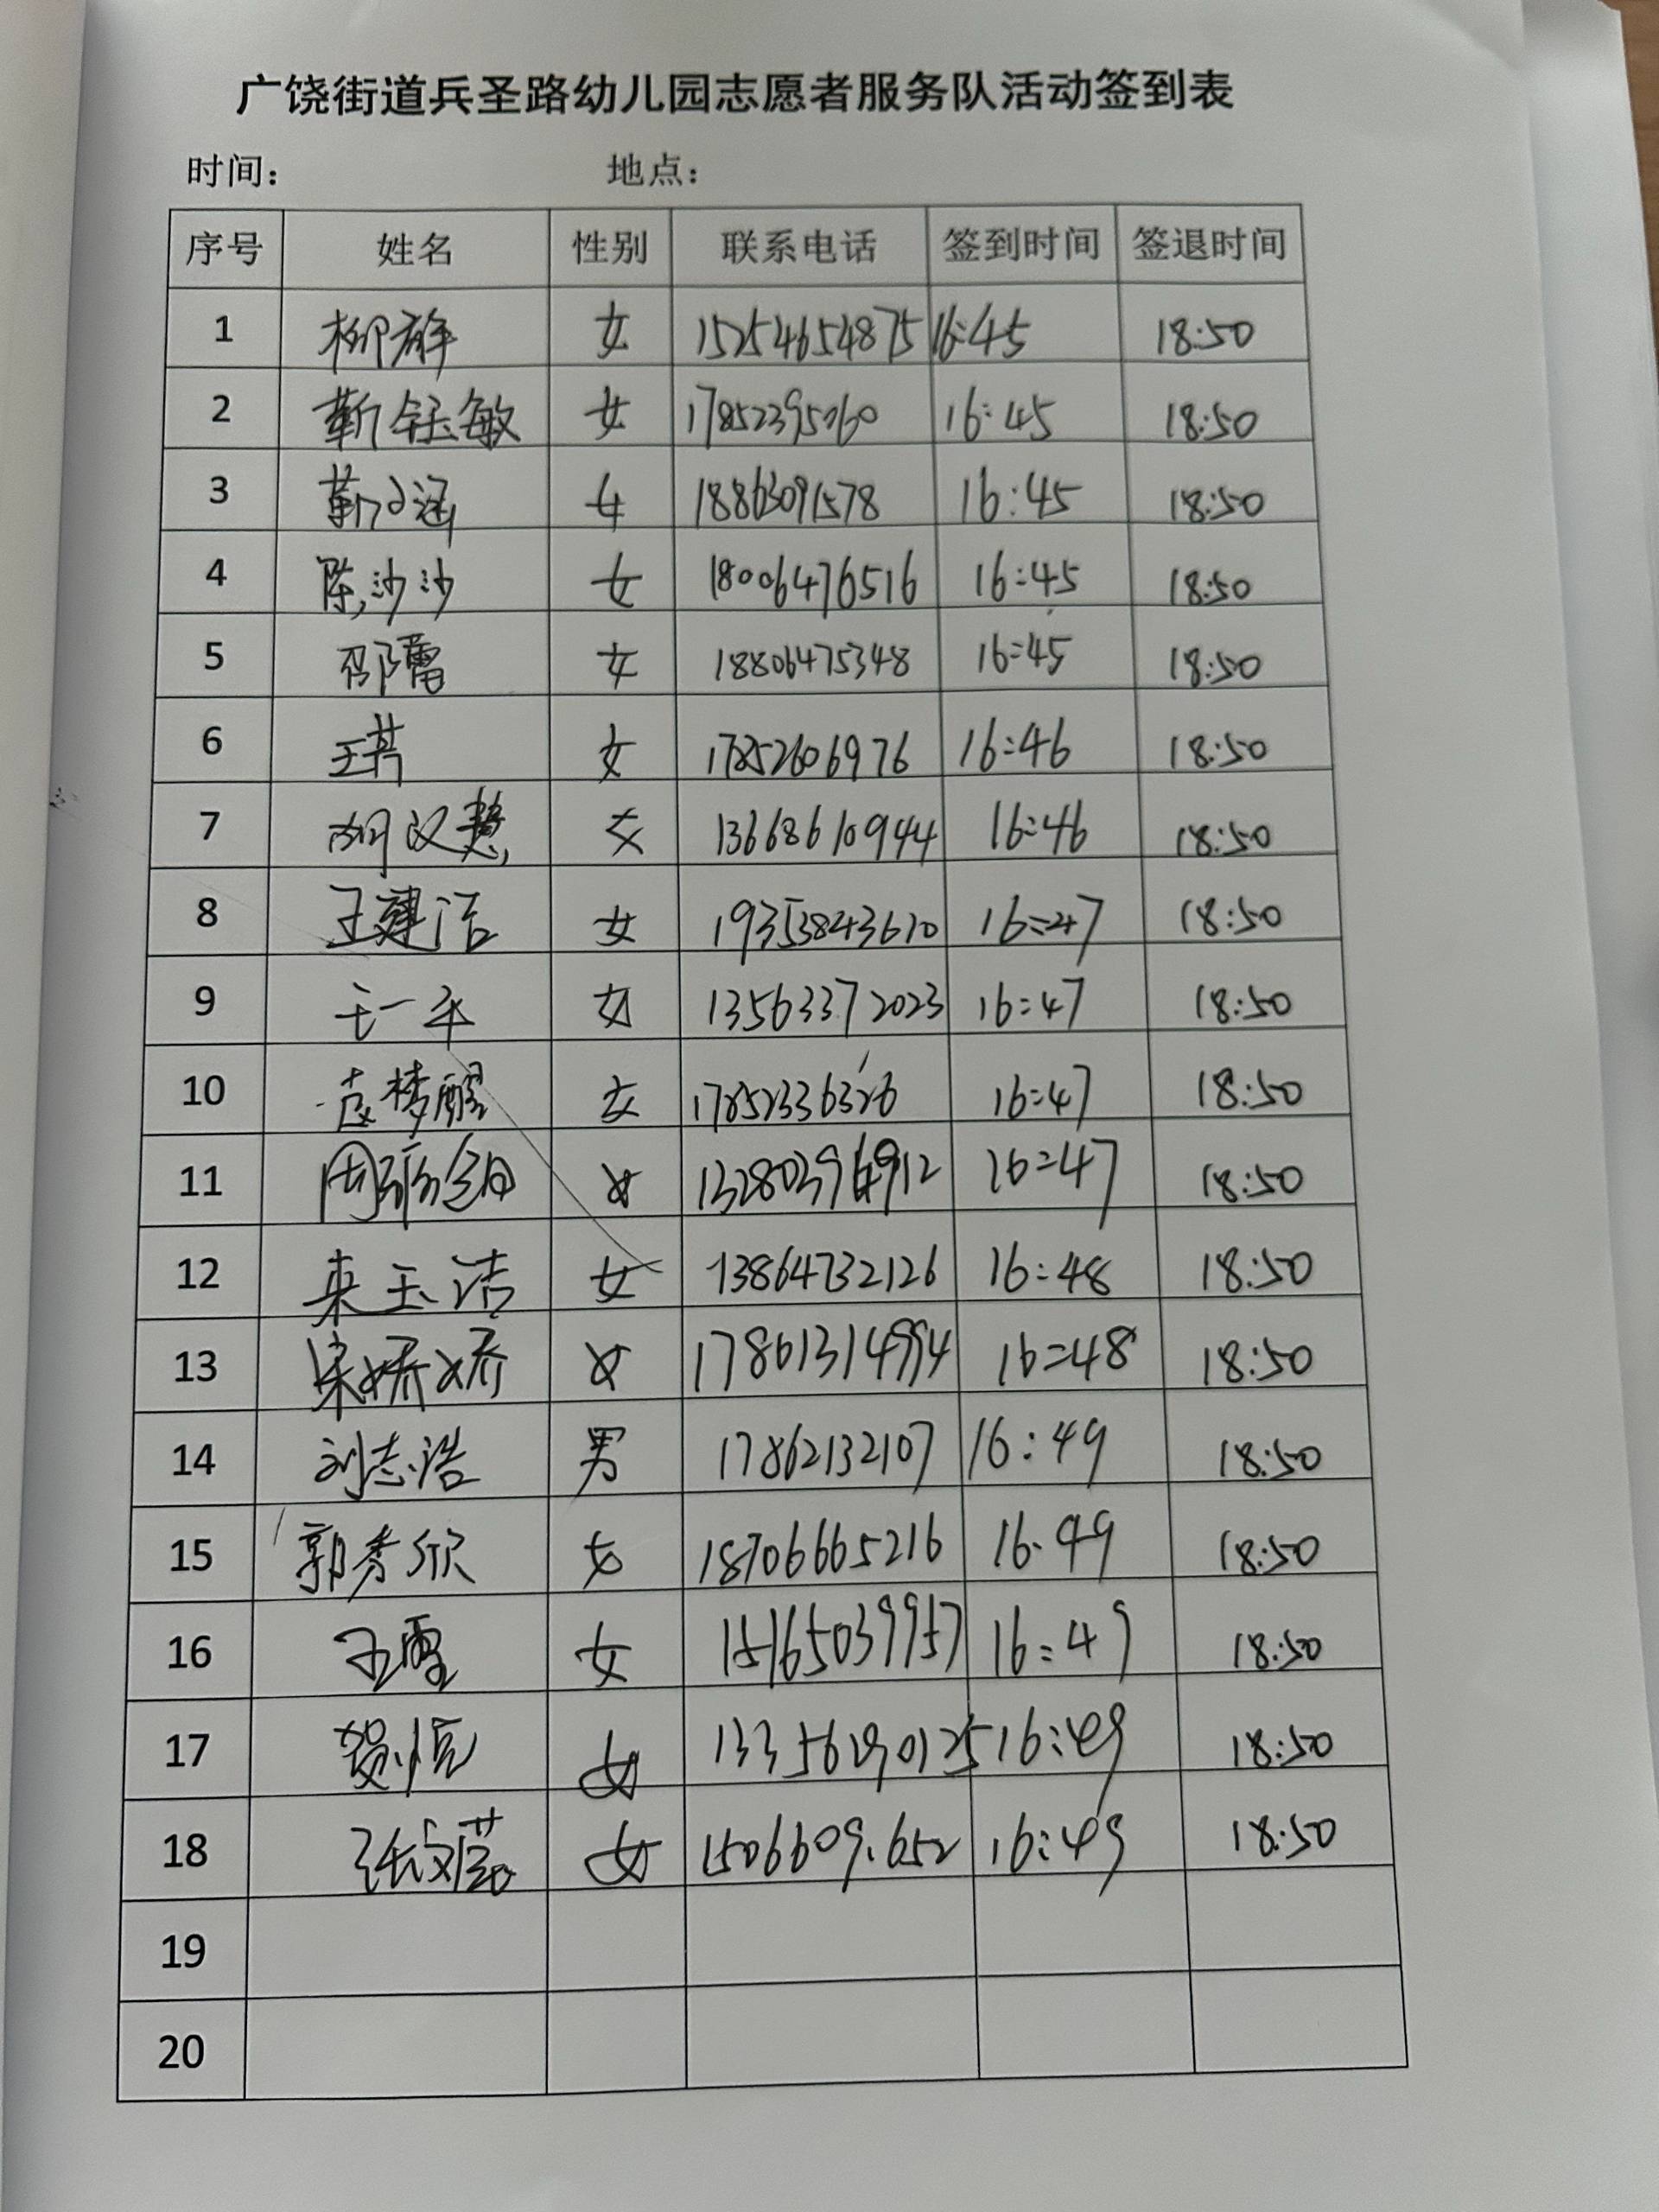 广饶街道兵圣路幼儿园志愿者服务队活动签到表
时间： 地点：
序号 姓名 性别 联系电话 签到时间 签退时间
1 柳群 女 15254654875 16:45 18:50
2 靳钰敏 女 17852395060 16:45 18:50
3 靳 女 18863091578 16:45 18:50
4 陈沙沙 女 18006476516 16:45 18:50
5 邵蕾 女 18806475348 16:45 18:50
6 王苒 女 17852606976 16:46 18:50
7 女 13668610944 16:46 18:50
8 王建洁 女 19353843610 16:47 18:50
9 王一平 女 13563372023 16:47 18:50
10 女 17852336326 16:47 18:50
11 周 女 16:47 18:50
12 来玉洁 女 13864732126 16:48 18:50
13 宋娇娇 女 17861314994 16:48 18:50
14 刘志浩 男 17862132107 16:49 18:50
15 郭秀欣 女 18706665216 16:49 18:50
16 王雪 女 15165039957 16:49 18:50
17 贺 女 13356190125 16:49 18:50
18 张文莲 女 16:49 18:50
19
20